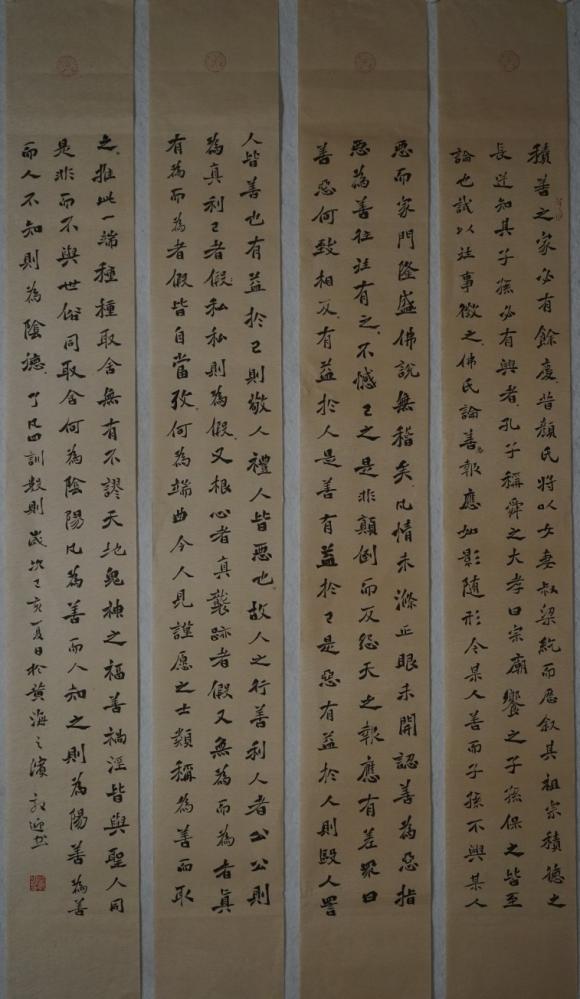 積善之家必有餘慶昔顏氏將以女妻叔梁紇而歷叙其祖宗積德之
長逆知其子孫必有興者孔子稱舜之大孝曰宗廟饗之子孫保之皆至
論也試以往事徵之佛氏論善惡報應如影隨形今某人善而子孫不興某人
惡而家門隆盛佛說無稽矣凡情未滌正眼未開認善為惡指
惡為善往往有之不憾己之是非顛倒而反怨天之報應有差眾曰
善惡何致相反有益於人是善有益於己是惡有益於人則毆人詈
人皆善也有益於己則敬人禮人皆惡也故人之行善利人者公公則
為真利己者假私私則為假又根心者真襲跡者假又無為而為者真
有為而為者假皆自當攷何為端曲今人見謹愿之士類稱為善而取
之推此一端種種取舍無有不謬天地鬼神之福善禍淫皆與聖人同
是非而不與世俗同取舍何為陰陽凡為善而人知之則為陽善為善
而人不知則為陰德 了凡四訓教則 歲次己亥夏日於黃海之濱